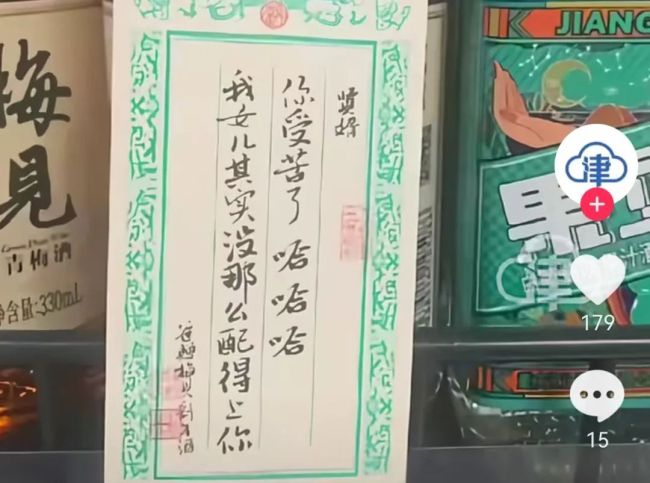 贤婿
你受苦了 哈哈哈
我女儿其实没那么配得上你
梅見
青梅酒
净含量:330mL
JIANG
果立
汁酒
津
179
15